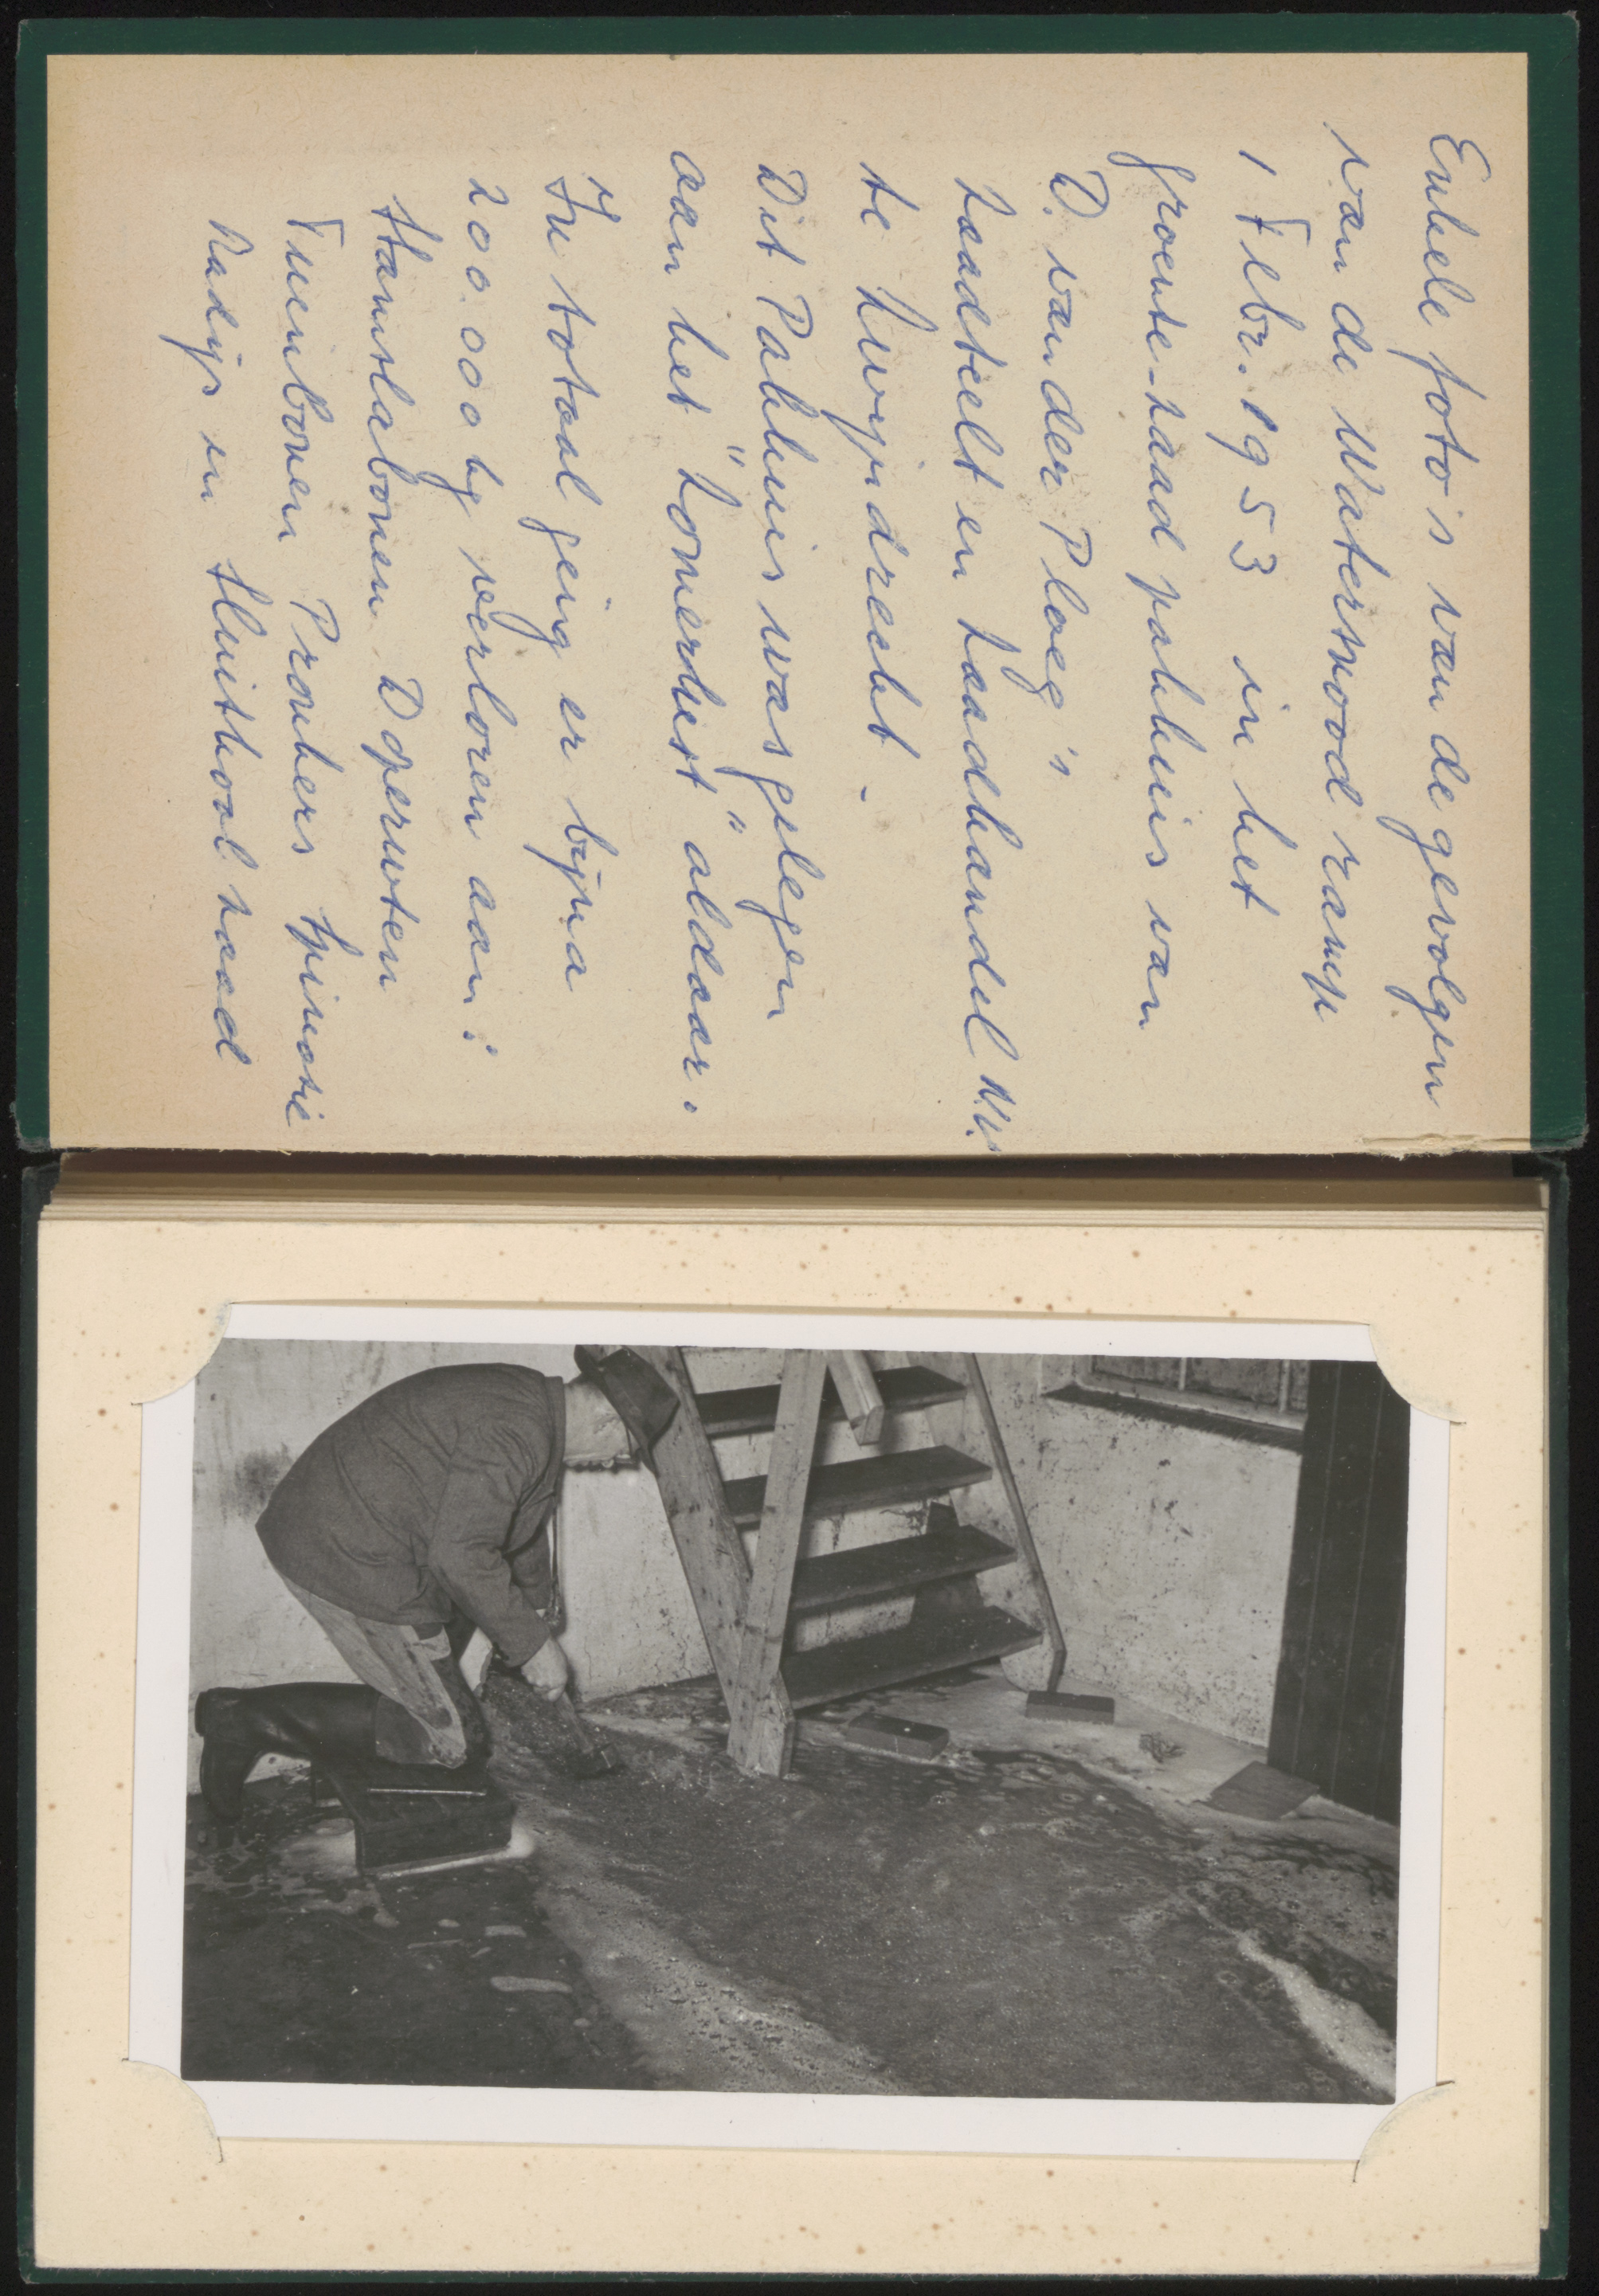 Enkele foto's van de gevolgen
van de Watersnood ramp
1 Febr. 1953 in het
groente-zaad pakhuis van
D. van der Ploeg's
zaadteelt en zaadhandel N.V.
te Zwijndrecht.
Dit Pakhuis was gelegen
aan het "Zomerlust" aldaar.
In totaal ging er bijna
200.000 kg verloren aan:
Stamslabonen Doperwten
Tuinbonen Pronkers Spinazie
Radijs en Sluitkool zaad